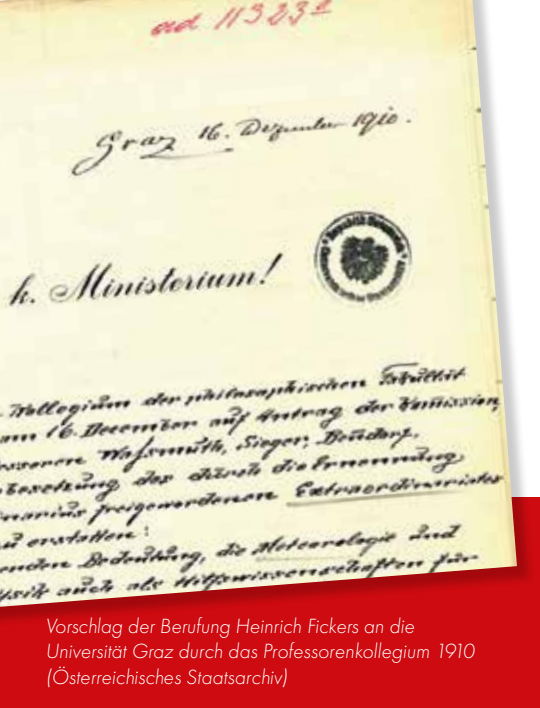 ad 11323
Graz 16. Dezember 1910.
k. Ministerium!
Kollegium der philosophischen Fakultät
am 16. December auf Antrag der Komission,
Waßmuth, Sieger, Benndorf,
besetzung des durch die Ernennung
freigewordenen Extraordinariates
zu erstatten:
Bedeutung, die Meteorologie und
auch als Hilfswissenschaften für
Vorschlag der Berufung Heinrich Fickers an die
Universität Graz durch das Professorenkollegium 1910
(Österreichisches Staatsarchiv)